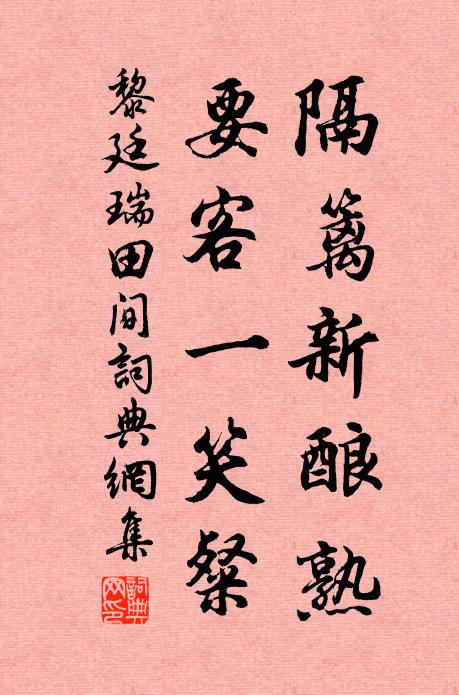 隔篱新酿熟
要客一笑粲
黎廷瑞田间詞典網集
詞典网印